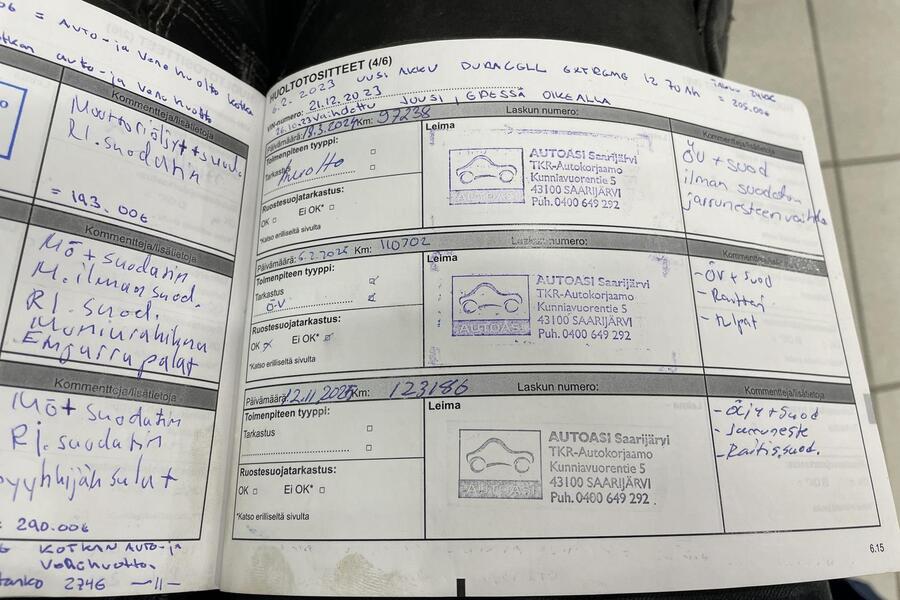 = AUTO-ja Varahuolto Kotka
Kotkan auto-ja Varahuolto
Kommentteja/lisätietoja
Moottoriöljyt + suod.
RI. suodatin
= 193.00€
Kommentteja/lisätietoja
Mö + suodatin
M. ilman suod.
RI. suod.
palat
Kommentteja/lisätietoja
Mö + suodatin
RI. suodatin
pyyhkijän sulat
= 290.00€
KOTKAN AUTO-ja
Varahuolto.
2746 —11—
HUOLTOTOSITTEET (4/6)
6.2.2023 UUSI AKKU DURACELL EXTREME 12 70Ah = 205.00€
VIN-numero: 21.12.2023
26.10.23 vaihdettu JOUSI EDESSÄ OIKEALLA
Päivämäärä: 18.3.2024 Km: 97238 Laskun numero:
Toimenpiteen tyyppi:
Tarkastus
Huolto
Ruostesuojatarkastus:
OK Ei OK*
*Katso erilliseltä sivulta
Leima
AUTOASI
AUTOASI Saarijärvi
TKR-Autokorjaamo
Kunniavuorentie 5
43100 SAARIJÄRVI
Puh. 0400 649 292
Kommentteja/lisätietoja
ÖV + suod
ilman suodatin
jarrunesteen vaihto
Päivämäärä: 6.2.2025 Km: 110702 Laskun numero:
Toimenpiteen tyyppi:
Tarkastus
Ö-V
Ruostesuojatarkastus:
OK Ei OK*
*Katso erilliseltä sivulta
Leima
AUTOASI
AUTOASI Saarijärvi
TKR-Autokorjaamo
Kunniavuorentie 5
43100 SAARIJÄRVI
Puh. 0400 649 292
- ÖV + suod
Päivämäärä: 12.11.2025 Km: 123186 Laskun numero:
Toimenpiteen tyyppi:
Tarkastus
Ruostesuojatarkastus:
OK Ei OK*
*Katso erilliseltä sivulta
Leima
AUTOASI
AUTOASI Saarijärvi
TKR-Autokorjaamo
Kunniavuorentie 5
43100 SAARIJÄRVI
Puh. 0400 649 292
Kommentteja/lisätietoja
- Öljy + suod
- Jarruneste
- Raitis.suod.
6.15